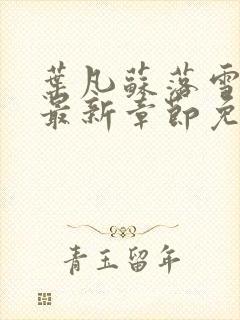 葉凡蘇落雪
最新章節免
青玉留年